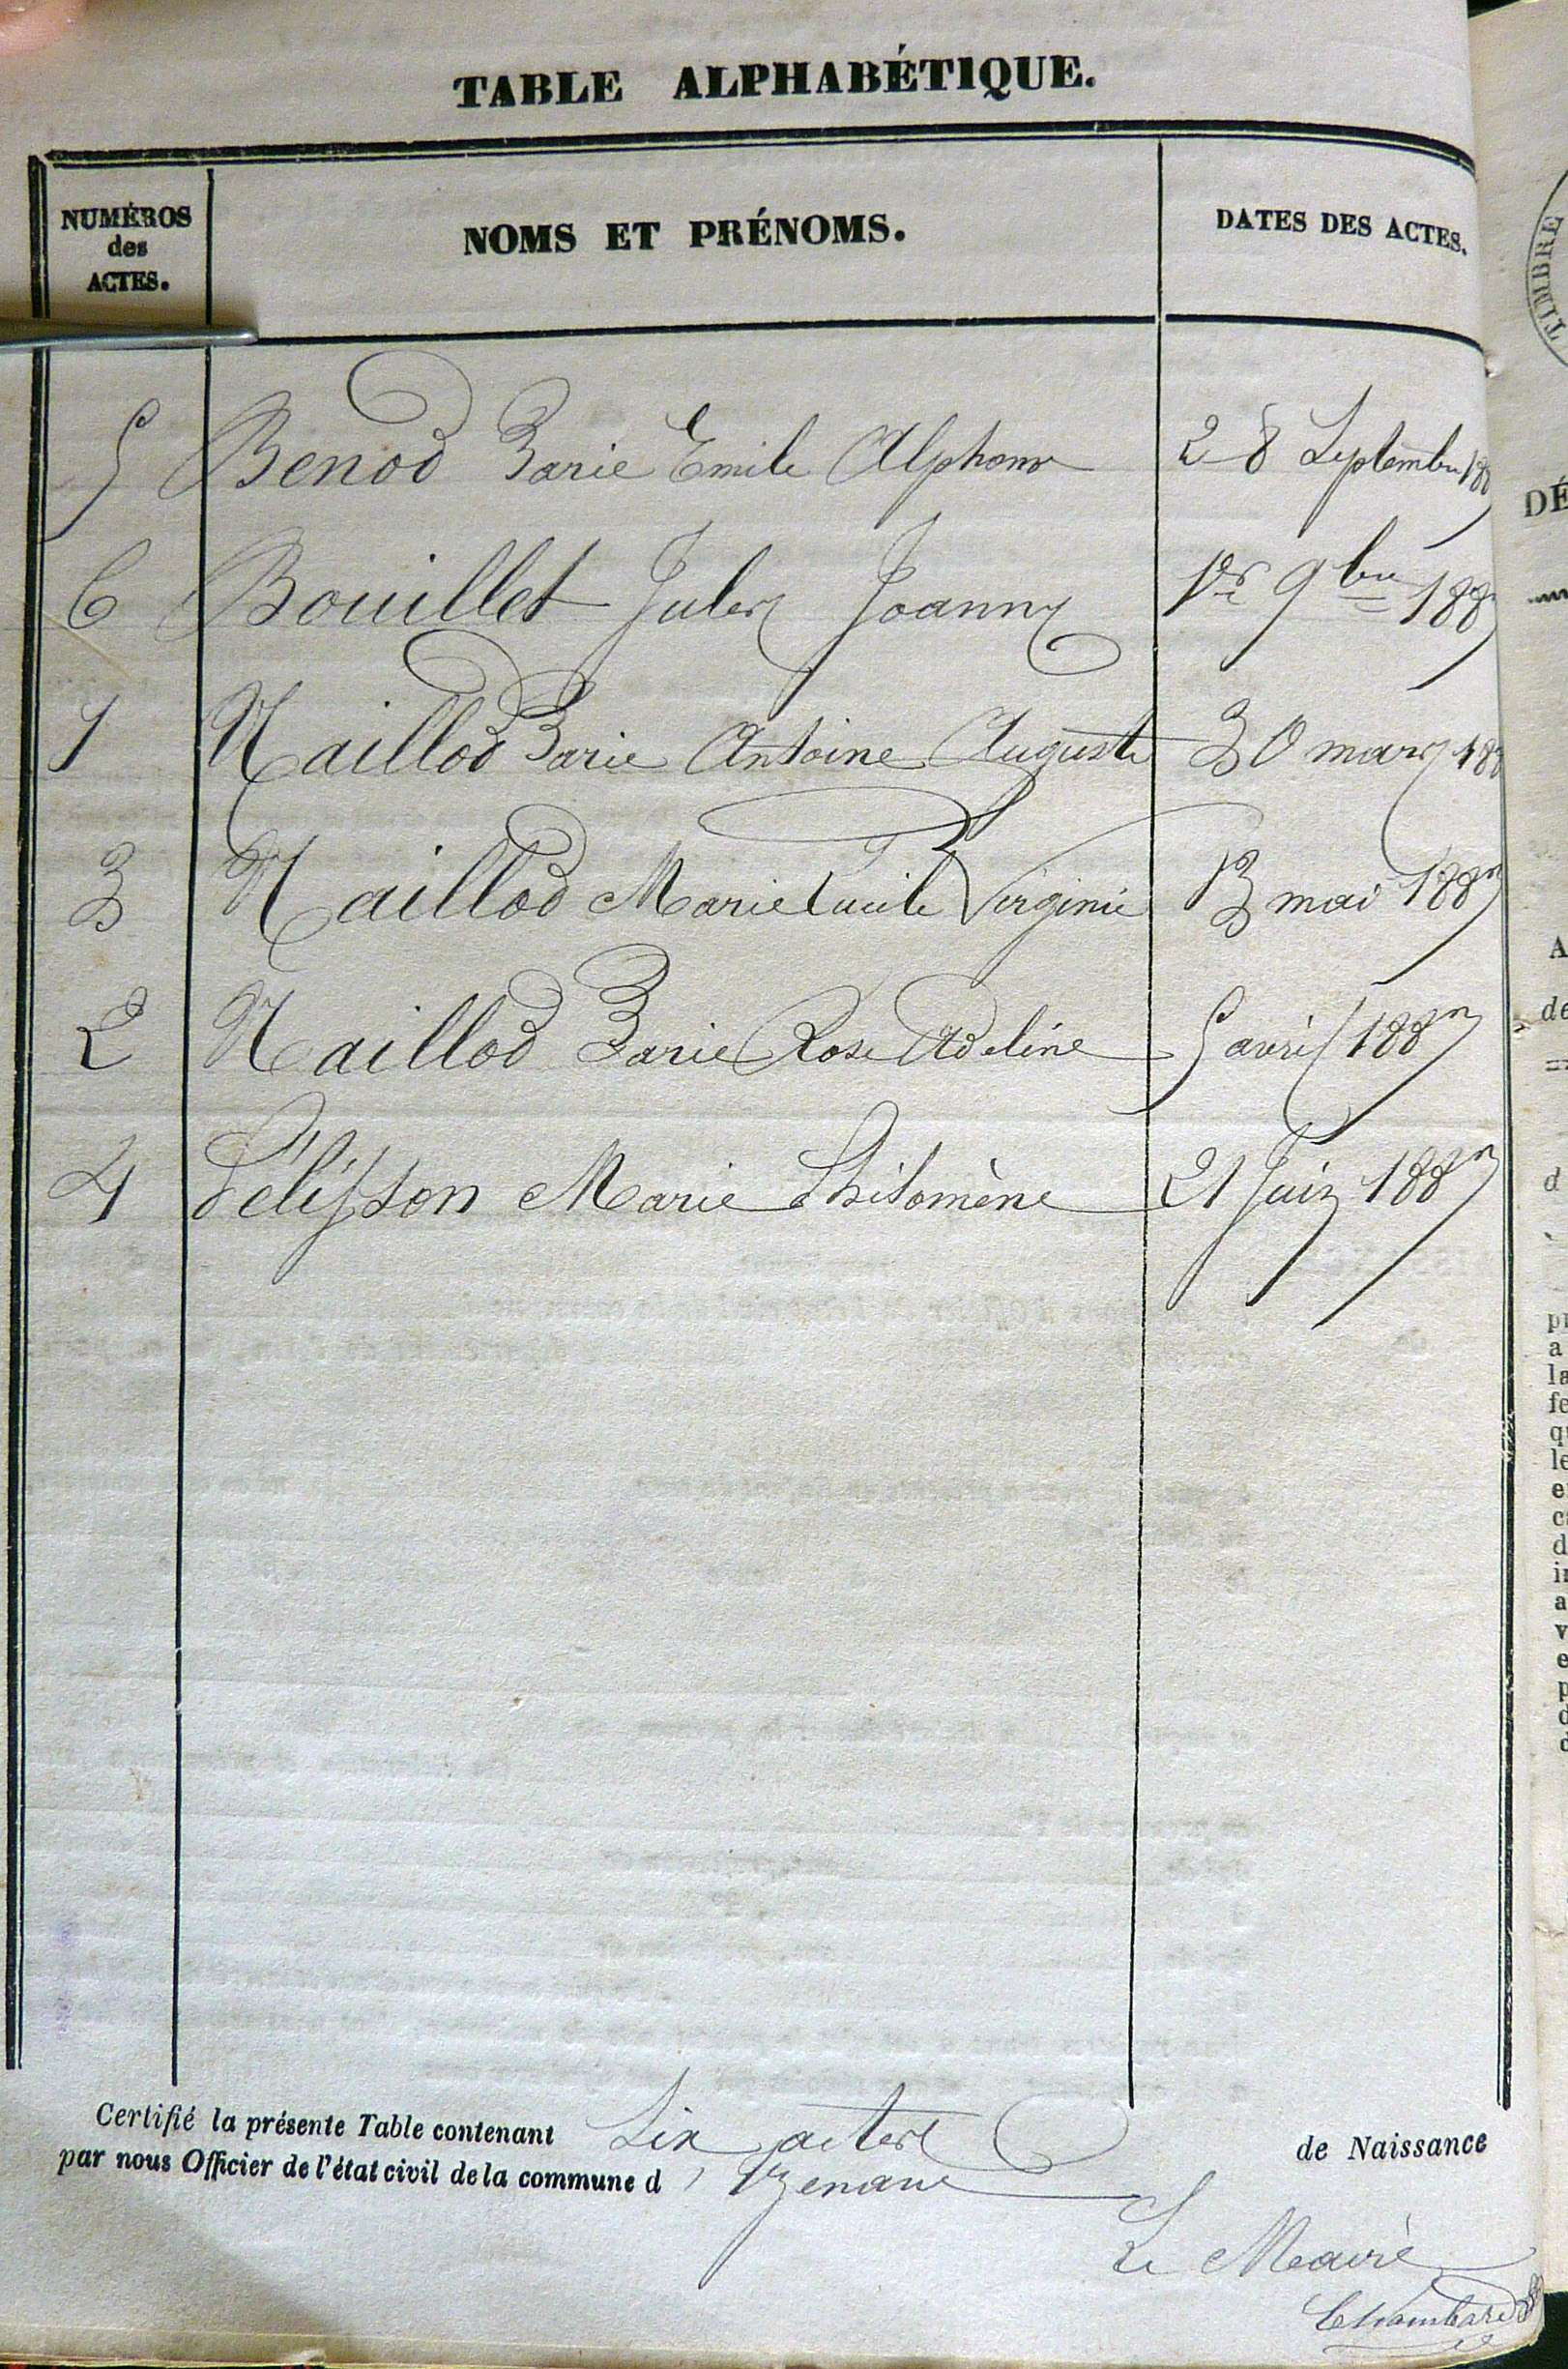 TABLE ALPHABÉTIQUE.
NUMÉROS des ACTES. NOMS ET PRÉNOMS. DATES DES ACTES.
5 Benod Marie Emile Alphonse 28 Septembre 188
6 Bouillet Jules Joanny 1er 9bre 188
1 Maillod Marie Antoine Auguste 30 mars 188
3 Maillod Marie Lucile Virginie 13 mai 188
2 Maillod Marie Rose Adeline 5 avril 188
4 Pélisson Marie Philomène 21 Juin 188
Certifié la présente Table contenant Six actes de Naissance
par nous Officier de l'état civil de la commune d' Izenave
Le Maire
Chambard
TIMBRE
DÉ